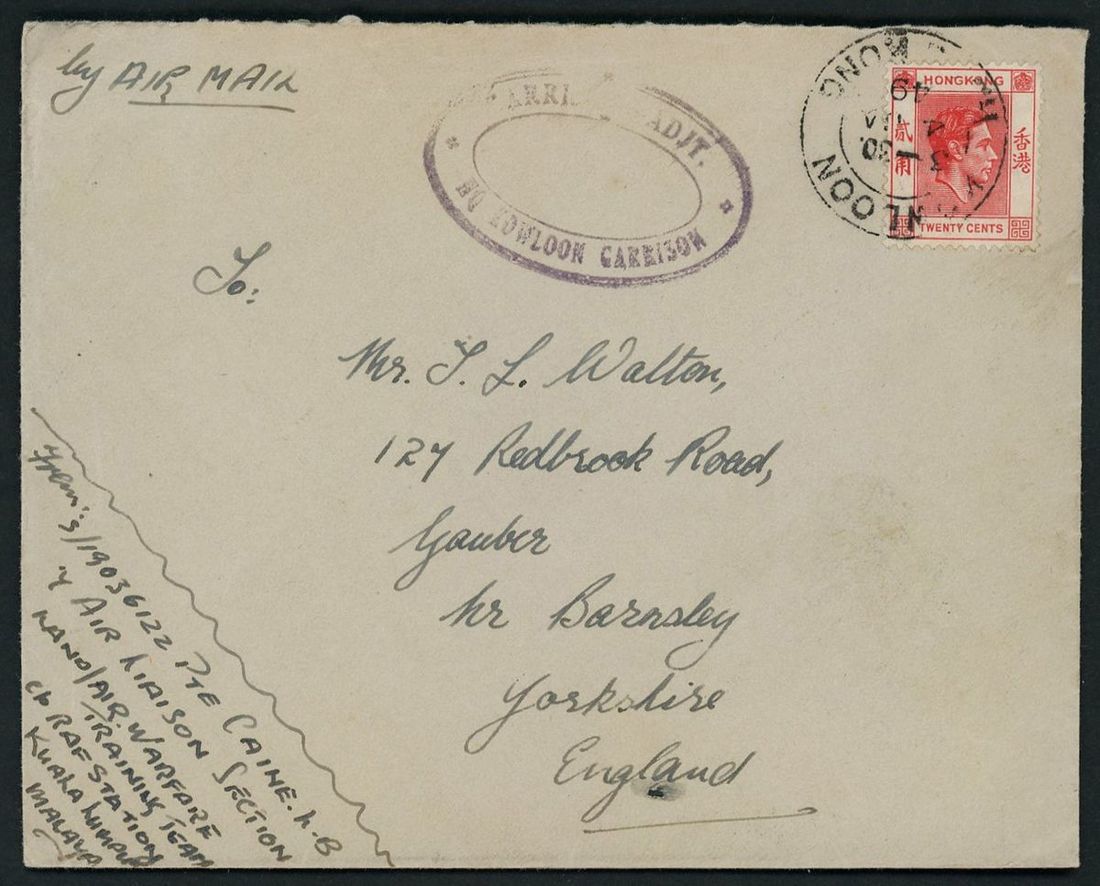 by AIR MAIL
GARRISON ADJT.
HQ KOWLOON GARRISON
KOWLOON
HONG KONG
1.30
49
HONGKONG
貳角
香港
TWENTY CENTS
To:
Mr. T. L. Walton,
127 Redbrook Road,
Gauber
Nr Barnsley
Yorkshire
England
From:- S/19036122 PTE CAINE. L-B
AIR LIAISON SECTION
LAND/AIR. WARFARE
TRAINING TEAM
c/o RAF STATION
KUALA LUMPUR
MALAYA